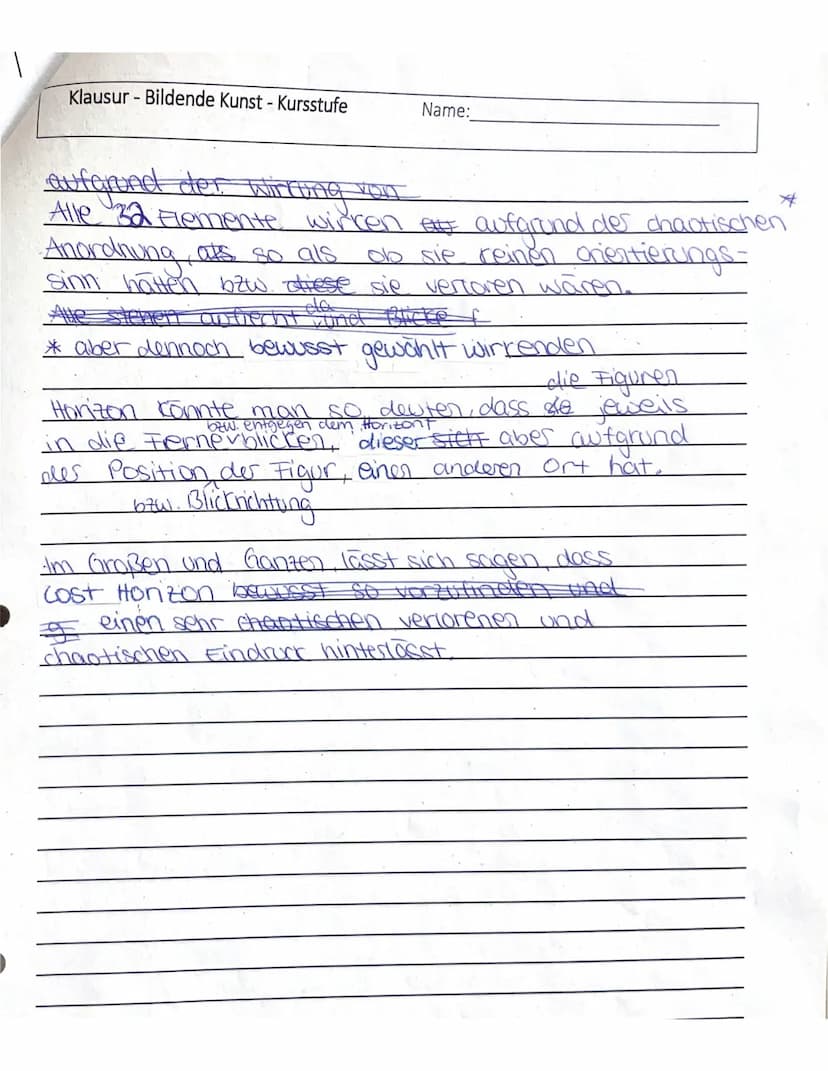 Klausur - Bildende Kunst - Kursstufe Name:
aufgrund der Wirkung von
Alle 32 Elemente wirken als aufgrund der chaotischen *
Anordnung, als so als ob sie keinen orientierungs-
sinn hätten bzw. diese sie verloren wären.
Alle stehen aufrecht da und Blicke f
* aber dennoch bewusst gewählt wirkenden
die Figuren
Horizon könnte man so deuten, dass sie jeweils
bzw. entgegen dem Horizont
in die Ferne blicken, dieser sich aber aufgrund
der Position der Figur, einen anderen Ort hat.
bzw. Blickrichtung
Im Großen und Ganzen lässt sich sagen, dass
Lost Horizon bewusst so vorzufinden und
g einen sehr chaotischen verlorenen und
chaotischen Eindruck hinterlässt.